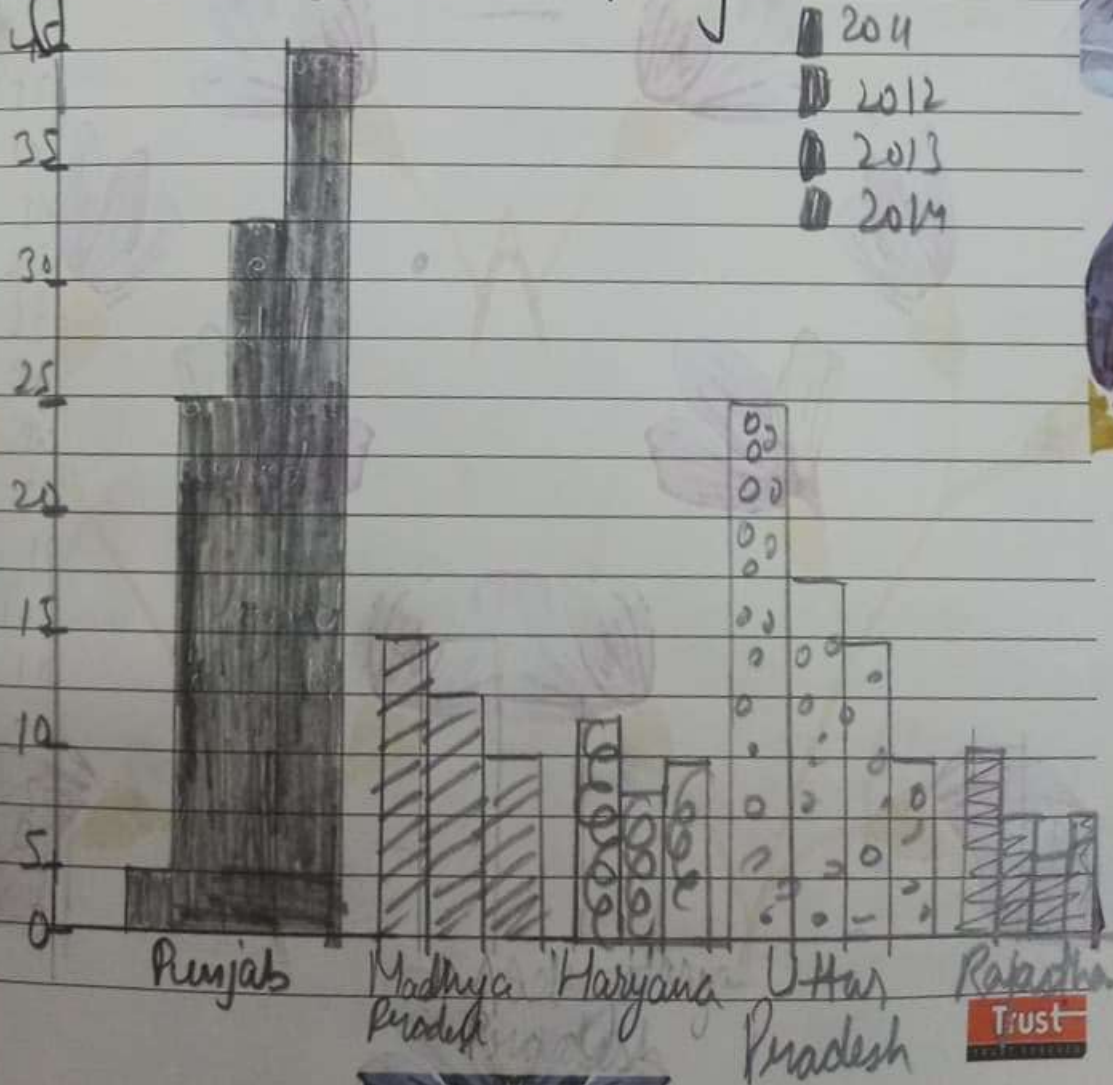 2011
2012
2013
2014
40
35
30
25
20
15
10
5
0
Punjab
Madhya
Pradesh
Haryana
Uttar
Pradesh
Trust